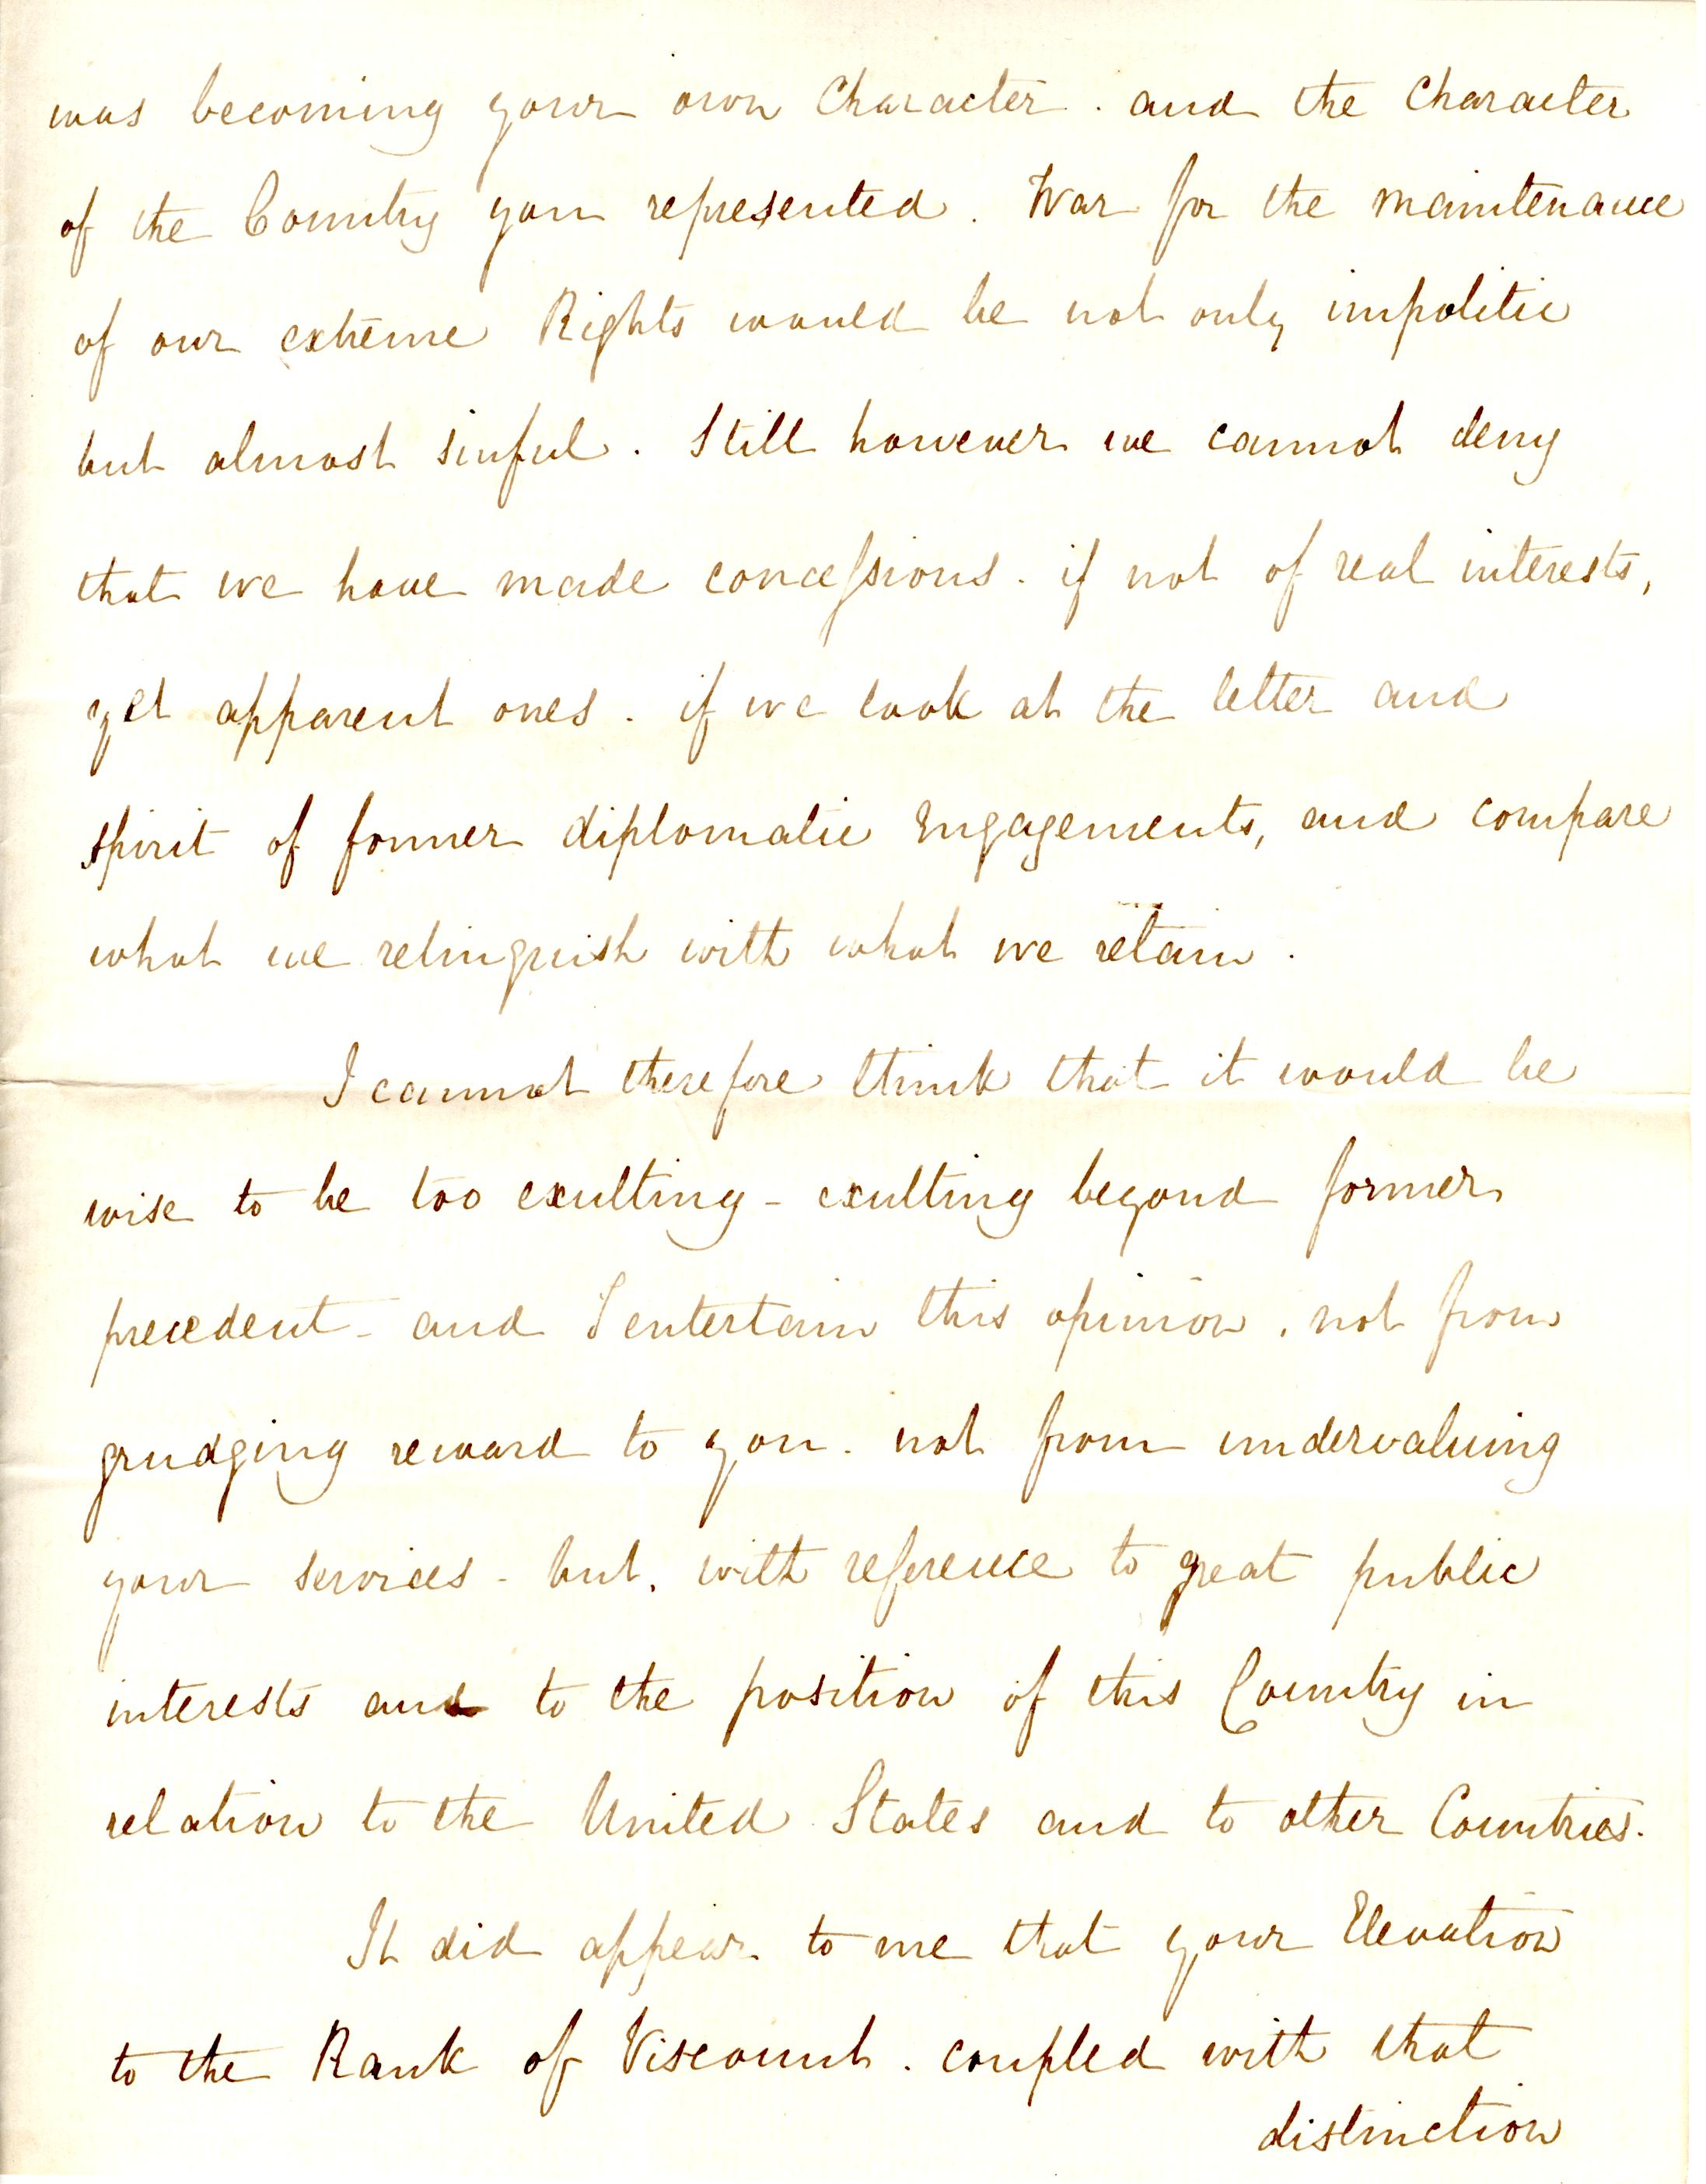 was becoming your own Character. and the Character
of the Country you represented. War for the maintenance
of our extreme Rights would be not only impolitic
but almost sinful. Still however we cannot deny
that we have made concessions. if not of real interests,
yet apparent ones. if we look at the letter and
spirit of former diplomatic Engagements, and compare
what we relinquish with what we retain.
I cannot therefore think that it would be
wise to be too exulting - exulting beyond former
precedent - and I entertain this opinion, not from
grudging reward to you. not from undervaluing
your services - but, with reference to great public
interests and to the position of this Country in
relation to the United States and to other Countries.
It did appear to me that your Elevation
to the Rank of Viscount. coupled with that
distinction